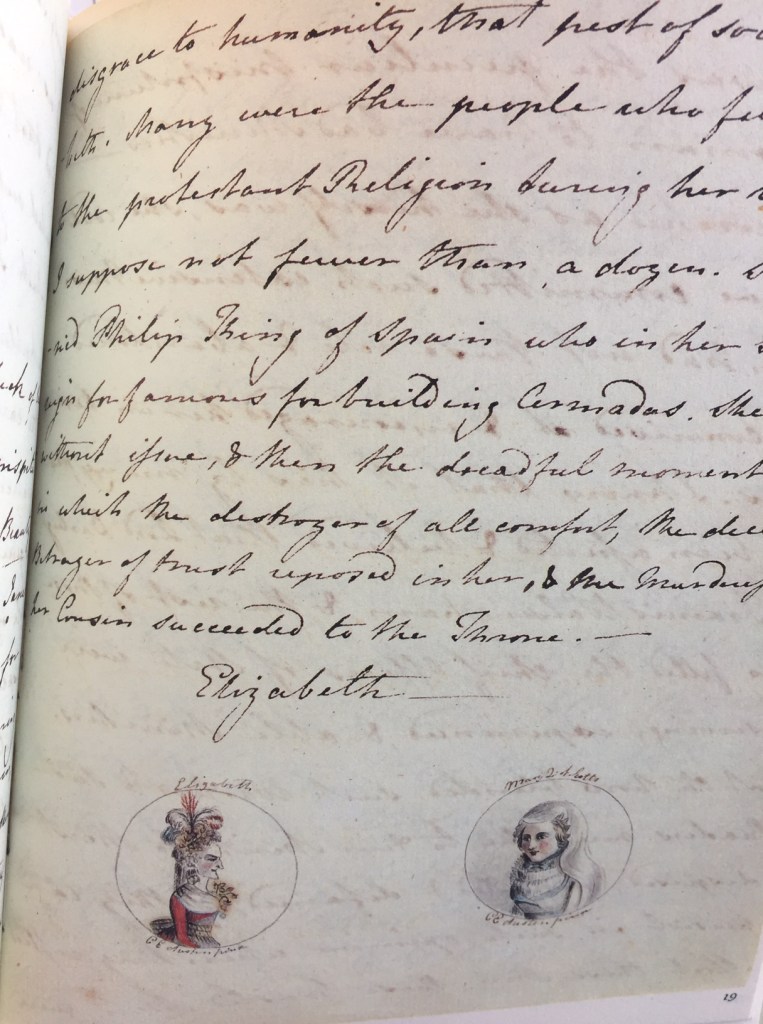 disgrace to humanity, that pest of soc
beth. Many were the people who fe
to the protestant Religion during her r
I suppose not fewer than a dozen. S
ried Philip King of Spain who in her s
eign for famous for building Armadas. She
without issue, & then the dreadful moment
in which the destroyer of all comfort, the dec
Betrayer of trust reposed in her, & the Murdress
her Cousin succeeded to the Throne. —
Elizabeth —
Elizabeth
CE Austen pinx
Mary Q of Scotts
CE Austen pinx
19